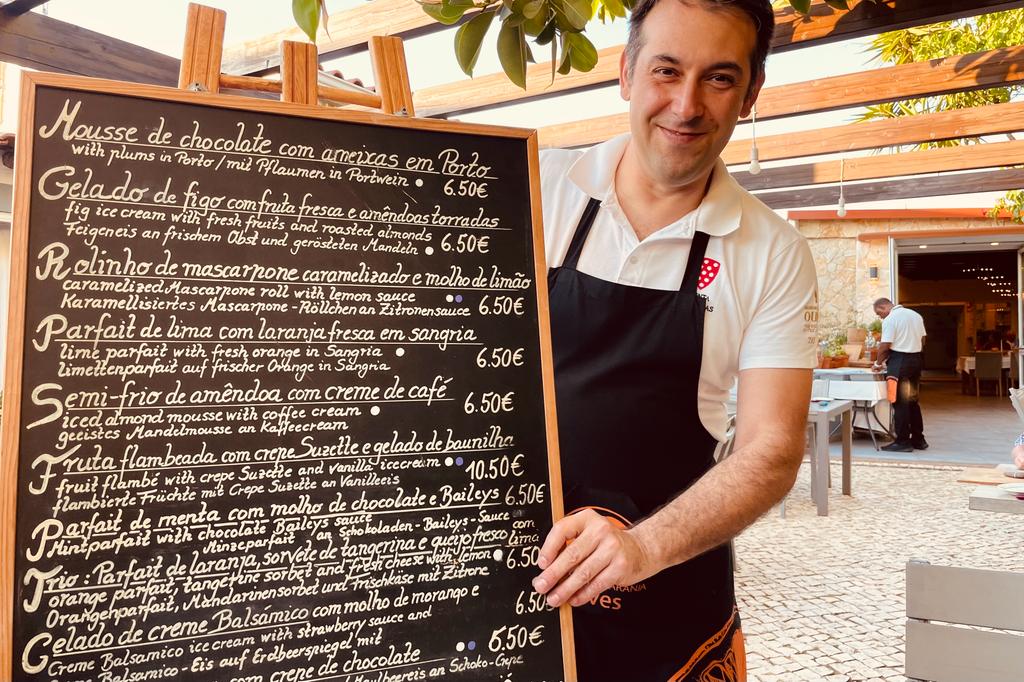 Mousse de chocolate com ameixas em Porto
with plums in Porto / mit Pflaumen in Portwein 6.50€
Gelado de figo com fruta fresca e amêndoas torradas
fig ice cream with fresh fruits and roasted almonds
Feigeneis an frischem Obst und gerösteten Mandeln 6.50€
Rolinho de mascarpone caramelizado e molho de limão
caramelized Mascarpone roll with lemon sauce
Karamellisiertes Mascarpone-Röllchen an Zitronensauce 6.50€
Parfait de lima com laranja fresca em sangria
lime parfait with fresh orange in Sangria
limettenparfait auf frischer Orange in Sangria 6.50€
Semi-frio de amêndoa com creme de café
iced almond mousse with coffee cream
geeistes Mandelmousse an Kaffeecream 6.50€
Fruta flambeada com crepe Suzette e gelado de baunilha
fruit flambé with crepe Suzette and vanilla icecream
flambierte Früchte mit Crepe Suzette an Vanilleeis 10.50€
Parfait de menta com molho de chocolate e Baileys 6.50€
Mintparfait with chocolate Baileys sauce
Minzeparfait an Schokoladen-Baileys-Sauce
Trio: Parfait de laranja, sorvete de tangerina e queijo fresco com lima
orange parfait, tangerine sorbet and fresh cheese with lemon 6.50
Orangenparfait, Mandarinensorbet und Frischkäse mit Zitrone
Gelado de creme Balsámico com molho de morango e 6.50
Creme Balsamico ice cream with strawberry sauce and
Creme Balsamico-Eis auf Erdbeerspiegel mit 5.50€
com crepe de chocolate
Maulbeereis an Schoko-Crepe